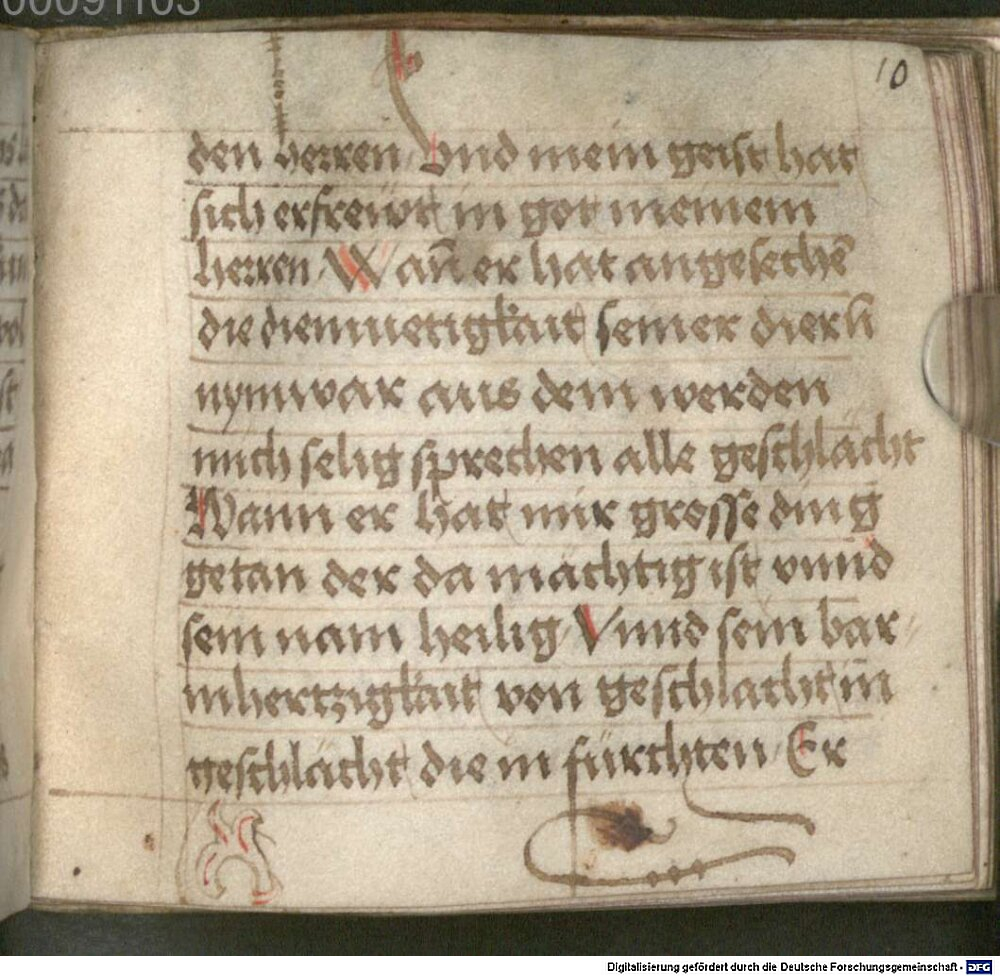 00091103
10
den herren Vnd mein geist hat
sich erfreẅt in got meinem
herren Wan̄ er hat angesechē
die diemuetigkait seiner diern
nym war aus dem werden
mich selig sprechen alle geschlächt
Wann er hat mir grosse ding
getan der da mächtig ist vnnd
sein nam heilig Vnnd sein bar
mhertzigkait von geschlächt in
geschlächt die in fürchten Er
Digitalisierung gefördert durch die Deutsche Forschungsgemeinschaft - DFG